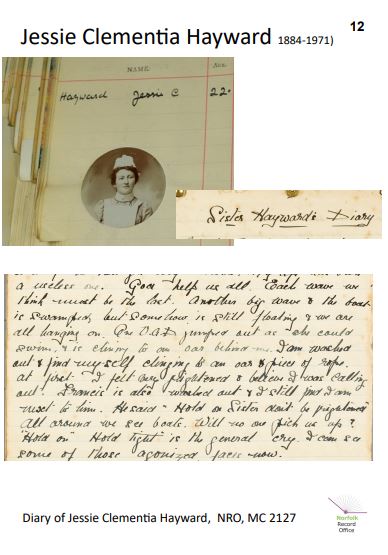 Jessie Clementia Hayward 1884-1971)
12
NAME. AGE.
Hayward Jessie C 22.
Sister Hayward's Diary
a useless one. God help us all. Each wave we
think must be the last. Another big wave & the boat
is swamped, but somehow is still floating & we are
all hanging on. One V.A.D. jumped out as she could
swim, & is clinging to an oar behind me. I am washed
out & find myself clinging to an oar & piece of rope.
at first I felt very frightened & believe I was calling
out. Francis is also washed out & I still find I am
next to him. He said "Hold on Sister dont be frightened"
All around we see boats. Will no one pick us up?
"Hold on Hold tight" is the general cry. I can see
some of those agonized faces now.
Diary of Jessie Clementia Hayward, NRO, MC 2127
Norfolk
Record
Office